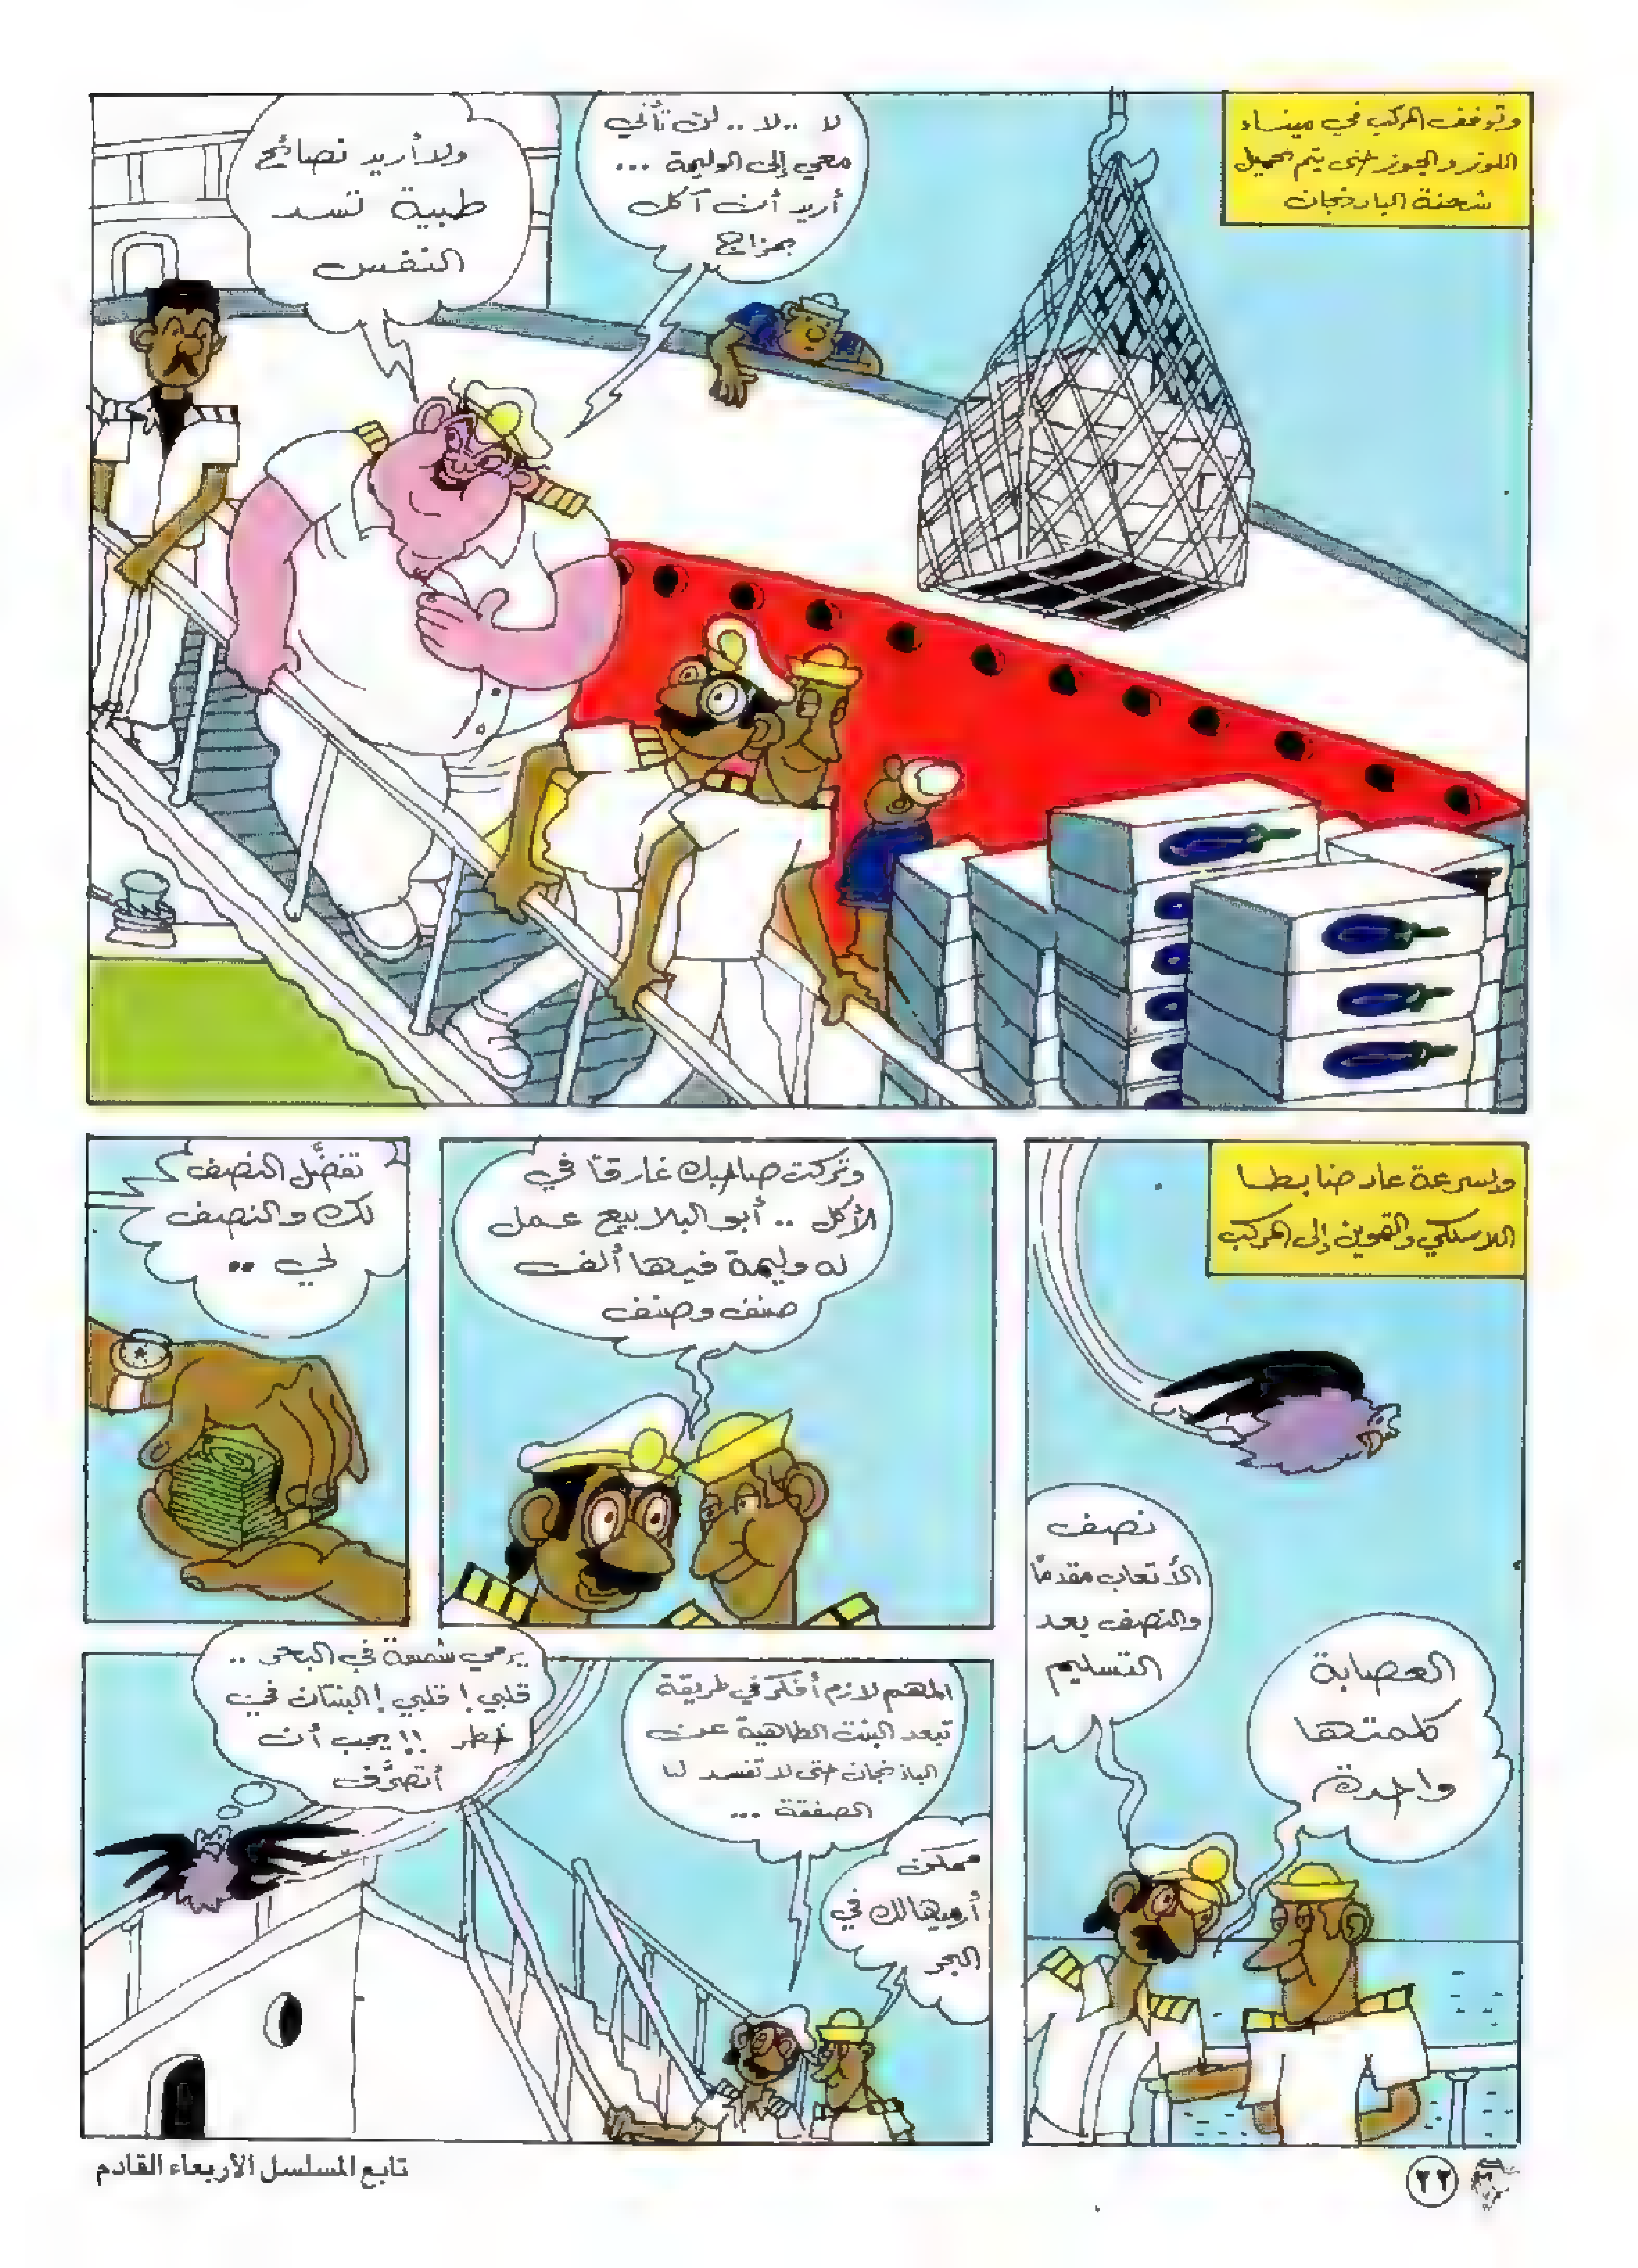 وتوقف المركب في ميناء
اللوز والجوز حتى يتم تحميل
شحنة الباذنجان
لا ..لا .. لن تأتي
معي إلى الوليمة ...
أريد أن آكل
بمزاج
ولا أريد نصائح
طبية تسد
النفس
وبسرعة عاد ضابطا
اللاسلكي والتموين إلى المركب
نصف
الأتعاب مقدمًا
والنصف بعد
التسليم
العصابة
كلمتها
واحدة
وتركت صاحبك غارقًا في
الأكل .. أبو البلابيع عمل
له وليمة فيها ألف
صنف وصنف
تفضَّل النصف
لك والنصف
لي ..
المهم لازم أفكر في طريقة
تبعد البنت الطاهية عن
الباذنجان حتى لا تفسد لنا
الصفقة ...
ممكن
أرميها لك في
البحر
يرمي شمسة في البحر ..
قلبي ! قلبي ! البنتان في
خطر !! يجب أن
أتصرَّف
تابع المسلسل الأربعاء القادم
٢٢